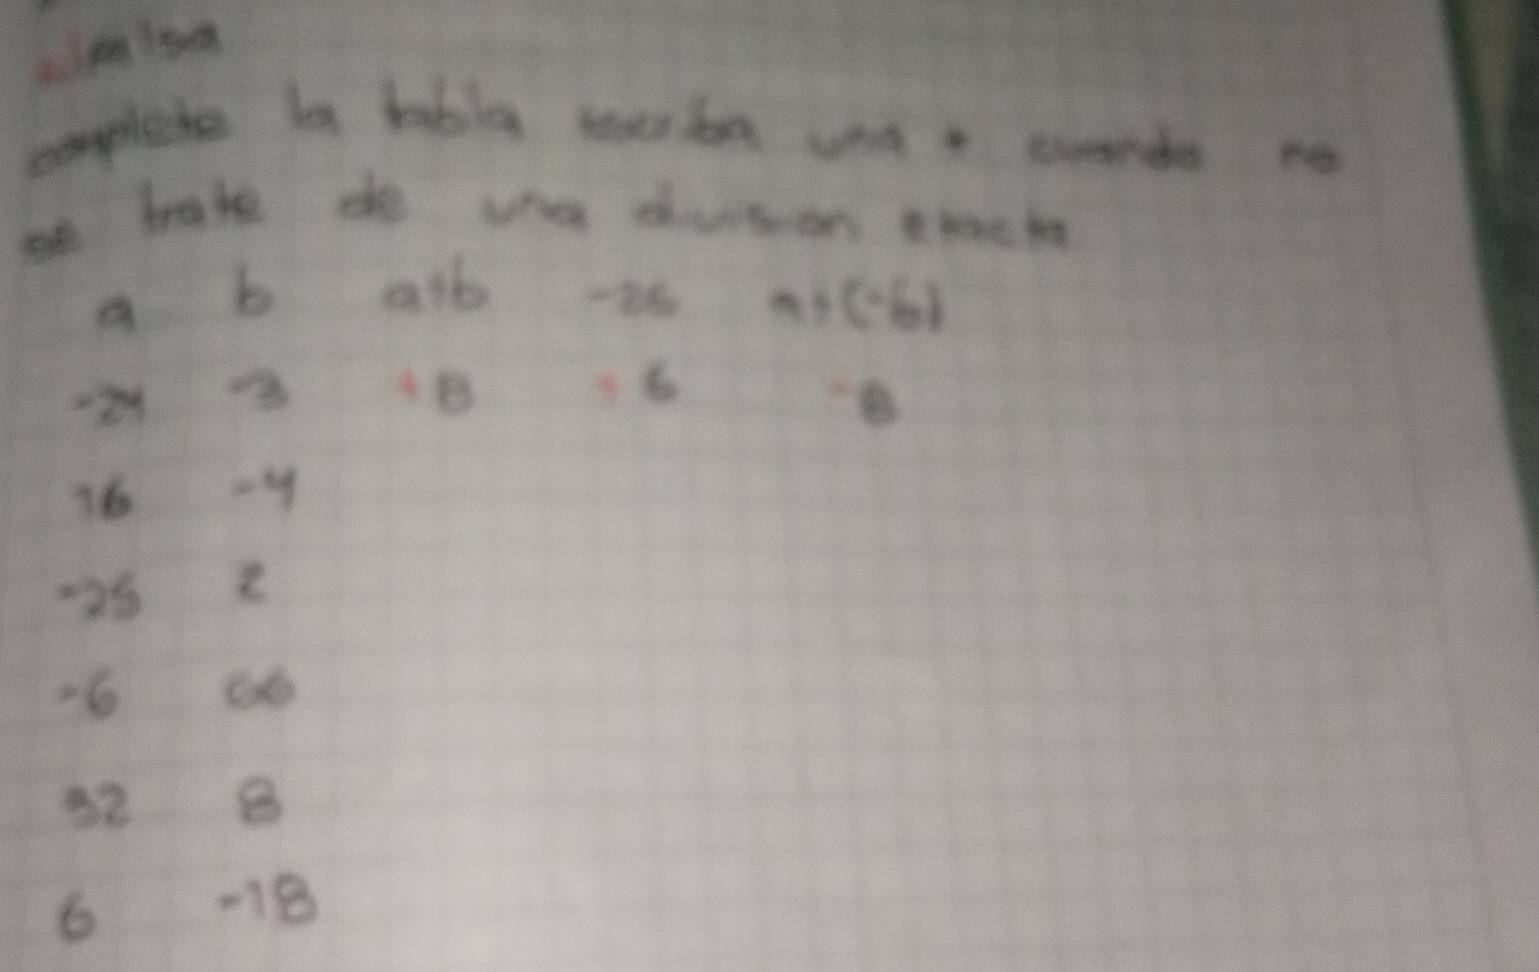 complete la tabla escriban una * cuando no
se trate de una division exacta
a b a÷b -2b a÷(-b)
-24 -3 +8 +6 -8
16 -4
-25 2
-6
32 8
6 -18